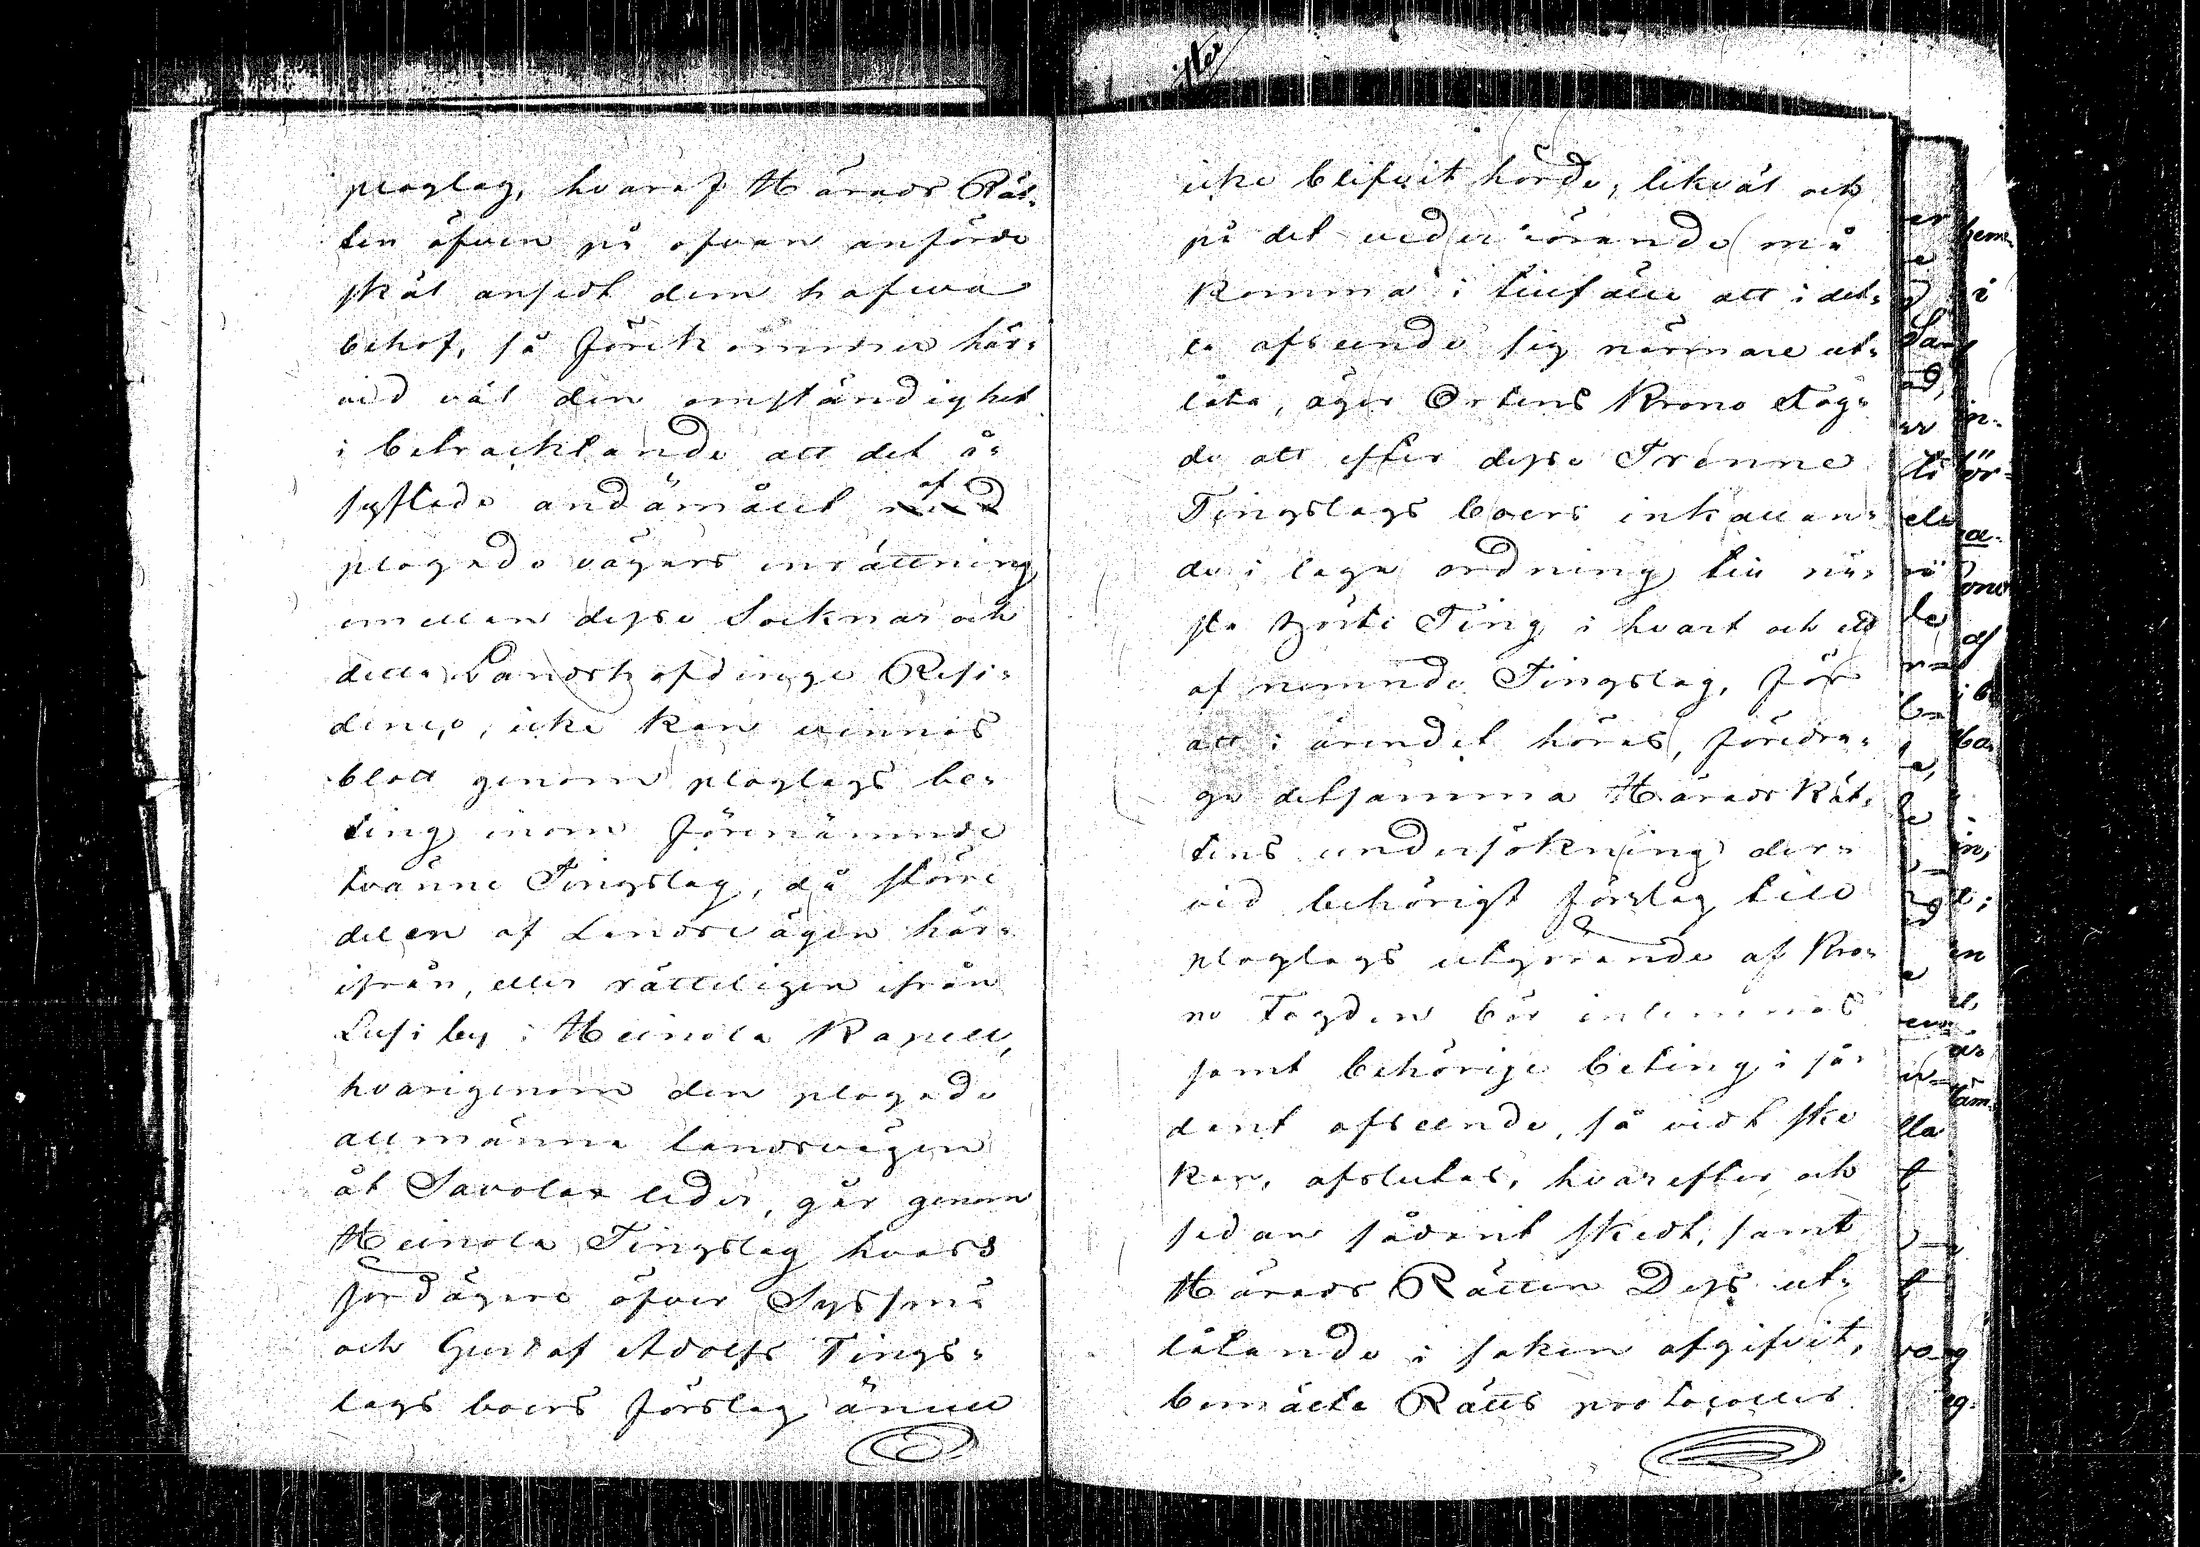 ploglag, hvaraf Härads Rät=
ten äfven på ofvan anförde
skäl ansedt dem hafwa
behof, så förekommer här=
vid väl den omständighet
i betracktande att det å=
syftade andamålet af
plogade vägars inrättning
emellan desse Socknar och
detta Landshöfdinge Resi=
dence, icke kan winnas
blott genom ploglags be=
ting inom förenämnde
tvänne Tingslag, då större
delen af Landsvägen här=
ifrån, eller rätteligen ifrån
Lusi by i Heinola Kapell,
hvarigenom den plogade
allmänna landsvägen
åt Savolax leder, går genom
Heinola Tingslag hvars
jordägare öfver Syssmä
och Gustaf Adolfs Tings=
lags boers förslag ännu
icke blifvit hörde, likväl och
på det vederbörande må
komma i tillfälle att i det=
ta afseende sig närmare ut=
låta, äger Ortens Krono Fog=
de att efter desse Trenne
Tingslags boers inkallan=
de i laga ordning till nä=
sta Höste Ting i hvart och ett
af nemnde Tingslag, för
att i ärendet höras, föredra=
ga detsamma Härads Rät=
tens undersökning der=
vid behörigt förslag till
ploglags utgörande af Kro=
no Fogden bör inlemnas
samt behörige beting i så=
dant afseende, så vidt ske
kan, afslutas, hvarefter och
sedan sådant skedt, samt
Härads Rätten Dess ut=
låtande i saken afgifvit,
bemälte Rätts protocoller